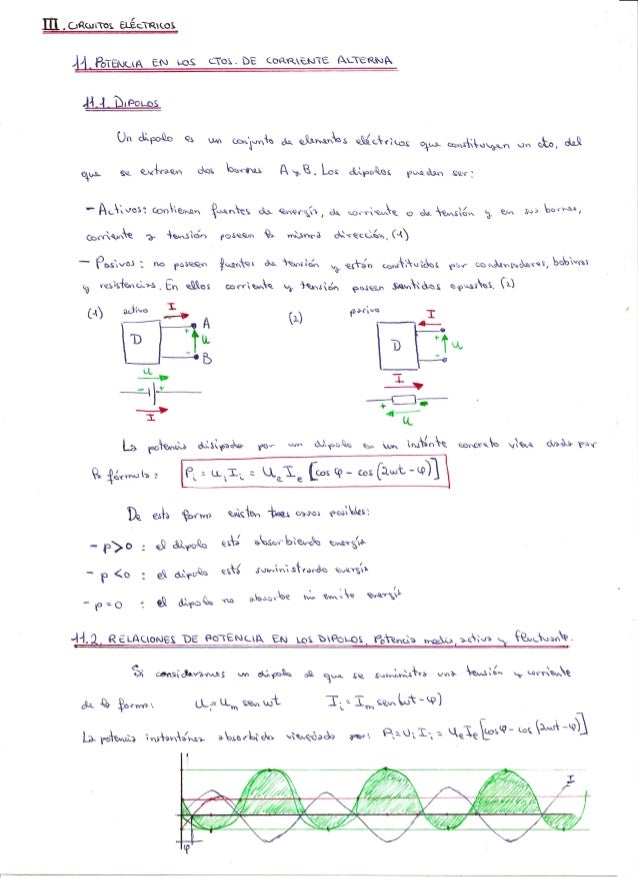 III. CIRCUITOS ELÉCTRICOS
11. POTENCIA EN LOS CTOS. DE CORRIENTE ALTERNA
11.1. DIPOLOS
Un dipolo es un conjunto de elementos eléctricos que constituyen un cto, del
que se extraen dos bornes A y B. Los dipolos pueden ser:
- Activos: contienen fuentes de energía, de corriente o de tensión y en sus bornes,
corriente y tensión poseen la misma dirección. (1)
- Pasivos: no poseen fuentes de tensión y están constituidos por condensadores, bobinas
y resistencias. En ellos corriente y tensión poseen sentidos opuestos. (2)
(1) activo I (2) pasivo I
D + A u - B D + u -
u I
- + + -
I u
La potencia disipada por un dipolo en un instante concreto viene dada por
la fórmula: Pi = ui Ii = Ue Ie [cos φ - cos (2wt - φ)]
De esta forma existen tres casos posibles:
- p>0 : el dipolo está absorbiendo energía
- p<0 : el dipolo está suministrando energía
- p=0 : el dipolo no absorbe ni emite energía
11.2. RELACIONES DE POTENCIA EN LOS DIPOLOS. Potencia media, activa y fluctuante.
Si consideramos un dipolo al que se suministra una tensión y corriente
de la forma: Ui = Um sen wt Ii = Im sen (wt - φ)
La potencia instantánea absorbida viene dada por: Pi = Ui Ii = Ue Ie [cos φ - cos (2wt - φ)]
I
φ